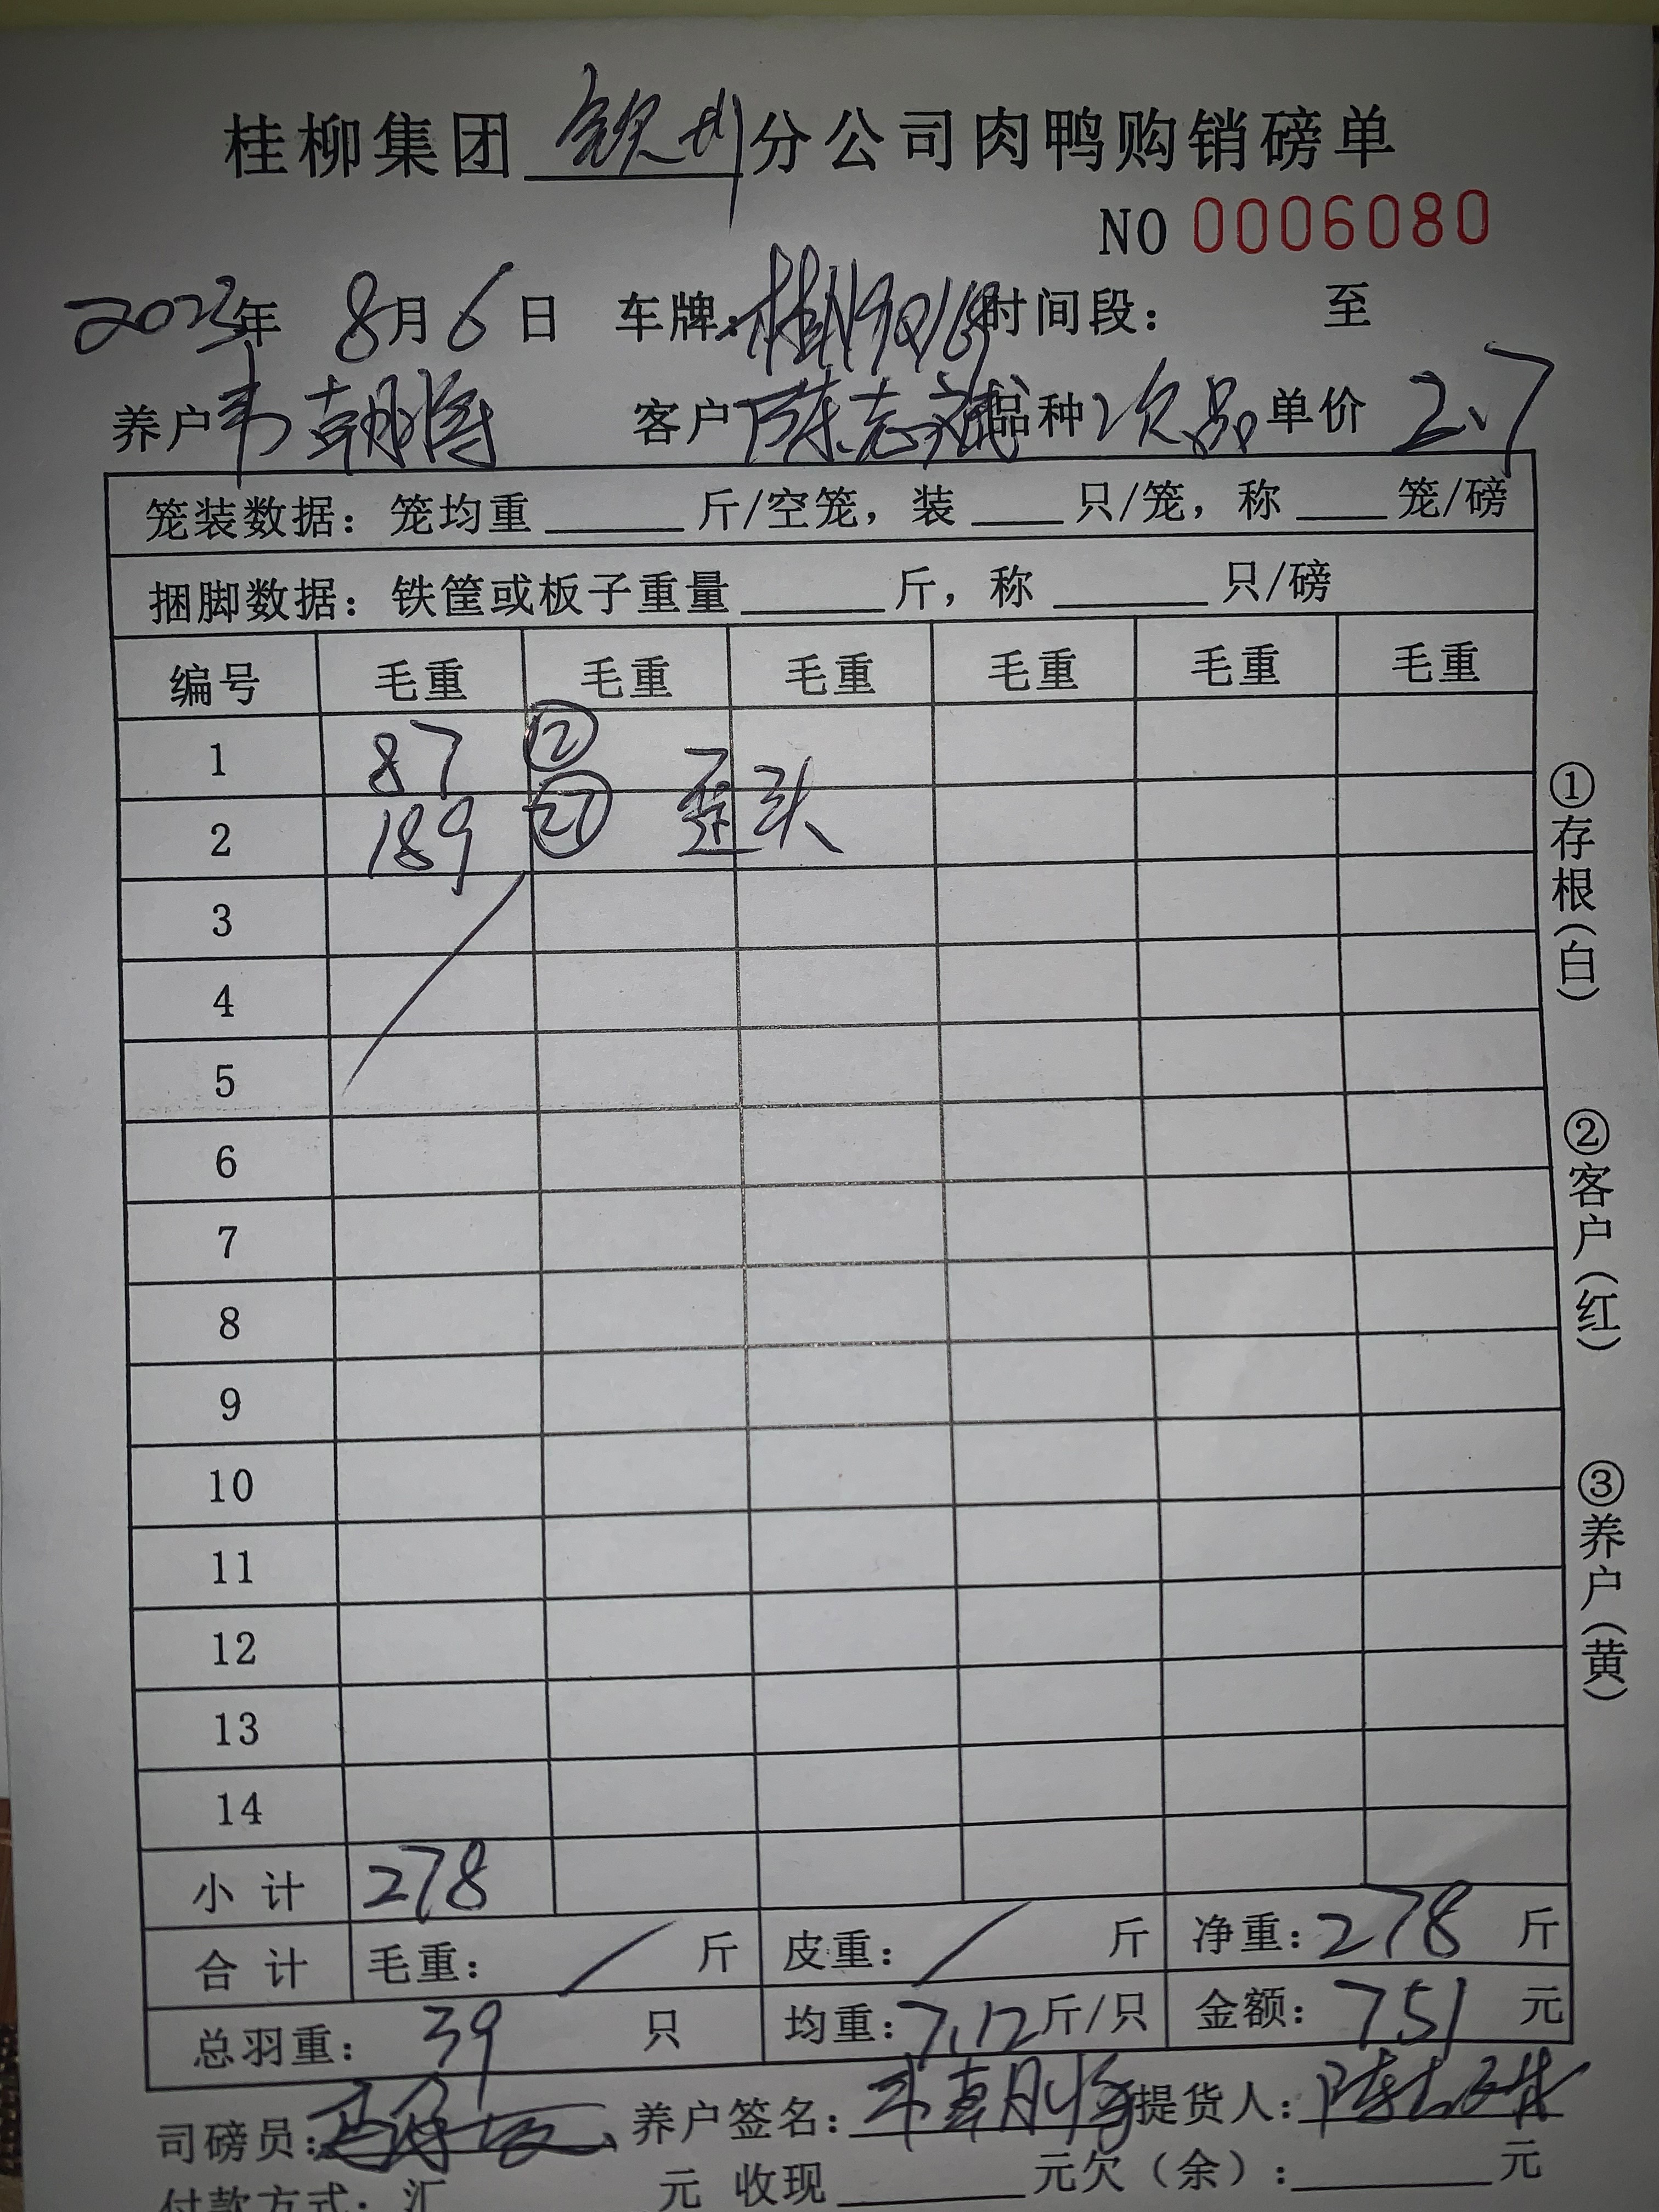 桂柳集团 钦州 分公司肉鸭购销磅单
NO 0006080
2023年 8月6日 车牌:桂N9Q169时间段: 至
养户 韦朝将 客户 陈志斌 品种 次品 单价 2.7
笼装数据: 笼均重______斤/空笼, 装____只/笼, 称____笼/磅
捆脚数据: 铁筐或板子重量______斤, 称______只/磅
编号 毛重 毛重 毛重 毛重 毛重 毛重
1 87 ⑫
2 189 ㉗ 歪头
3
4
5
6
7
8
9
10
11
12
13
14
小计 278
合计 毛重: / 斤 皮重: / 斤 净重: 278 斤
总羽重: 39 只 均重: 7.12斤/只 金额: 751 元
司磅员: 养户签名: 韦朝将 提货人: 陈志斌
付款方式: 汇 元 收现______元欠(余):______元
①存根(白)
②客户(红)
③养户(黄)